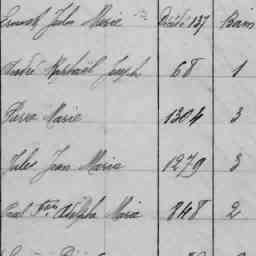 Jules Marie Décédé 137 Bain
André Raphaël Joseph 68 1
Pierre Marie 1304 3
Jules Jean Marie 1279 3
Adolphe Marie 848 2